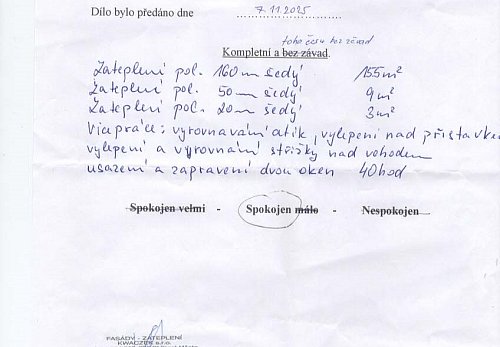 Dílo bylo předáno dne 7.11.2025
toho času bez závad
Kompletní a bez závad.
Zateplení pol. 160mm šedý 155m²
Zateplení pol. 50mm šedý 9m²
Zateplení pol. 20mm šedý 3m²
Vícepráce: vyrovnávání atik, vylepení nad přístavkem
vylepení a vyrovnání stříšky nad vchodem
usazení a zapravení dvou oken 40hod
Spokojen velmi - Spokojen málo - Nespokojen
FASÁDY - ZATEPLENÍ
KWACZEK s.r.o.